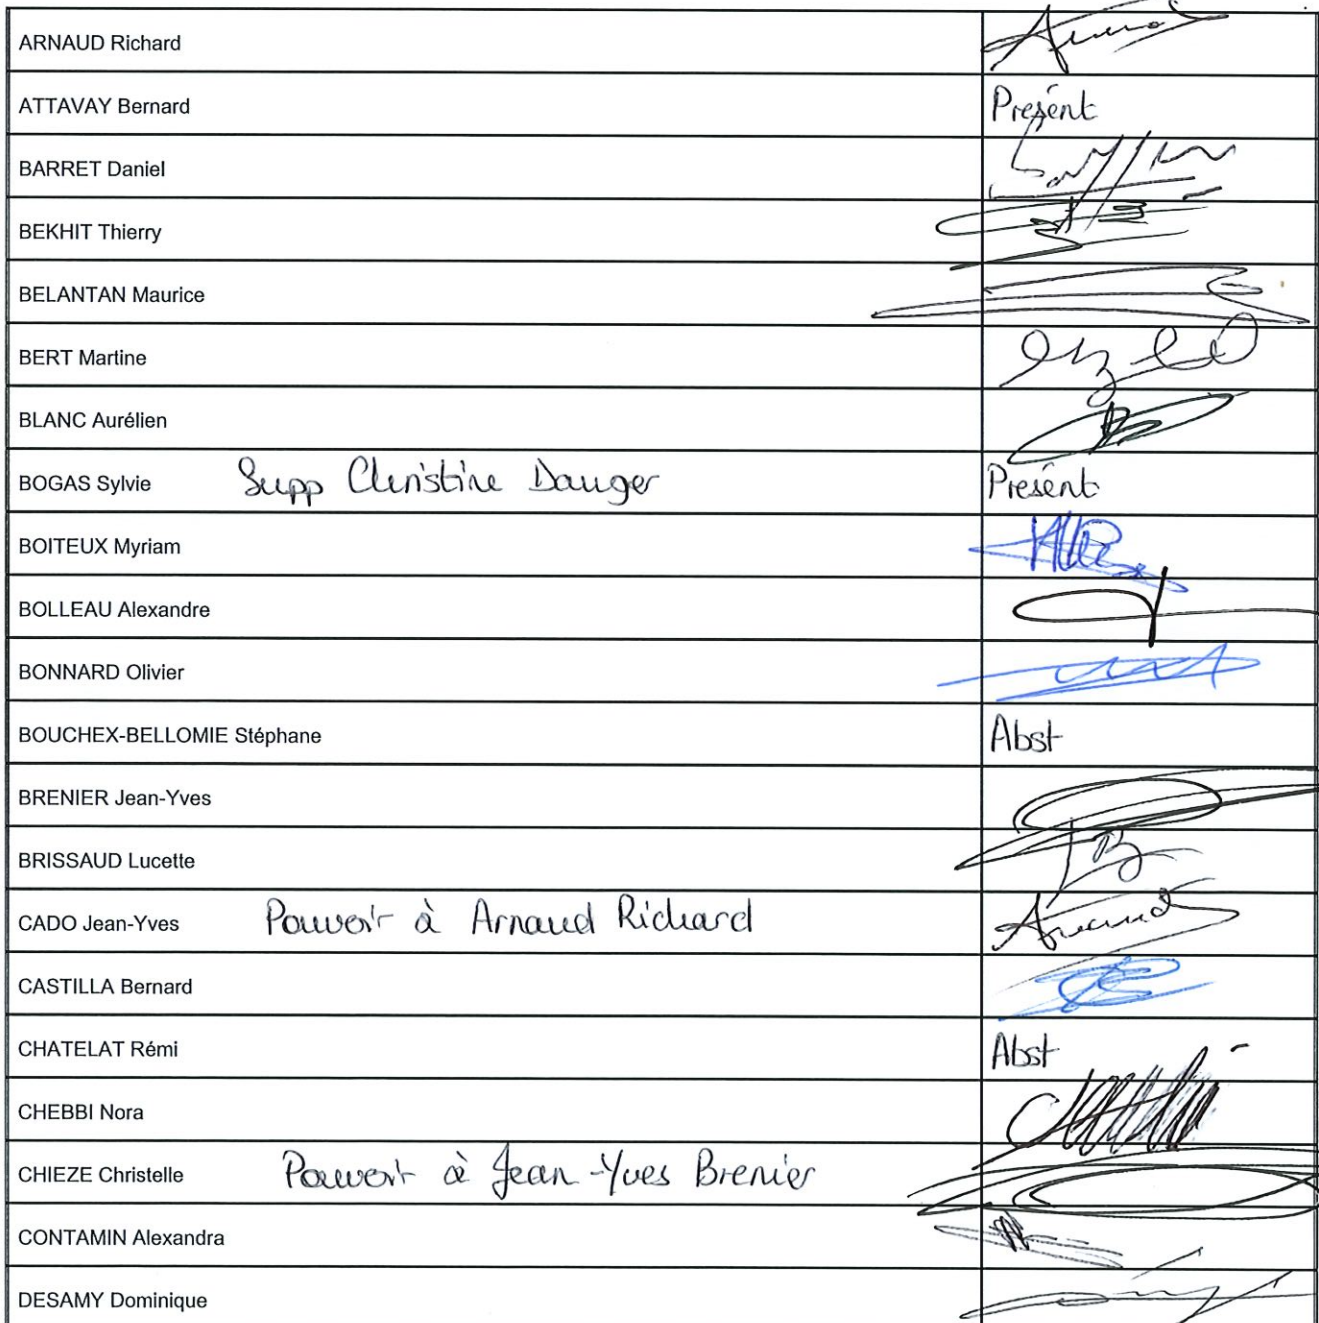 ARNAUD Richard
ATTAVAY Bernard Présent
BARRET Daniel
BEKHIT Thierry
BELANTAN Maurice
BERT Martine
BLANC Aurélien
BOGAS Sylvie Supp Christine Dauger Présent
BOITEUX Myriam
BOLLEAU Alexandre
BONNARD Olivier
BOUCHEX-BELLOMIE Stéphane Abst
BRENIER Jean-Yves
BRISSAUD Lucette
CADO Jean-Yves Pouvoir à Arnaud Richard
CASTILLA Bernard
CHATELAT Rémi Abst
CHEBBI Nora
CHIEZE Christelle Pouvoir à Jean-Yves Brenier
CONTAMIN Alexandra
DESAMY Dominique